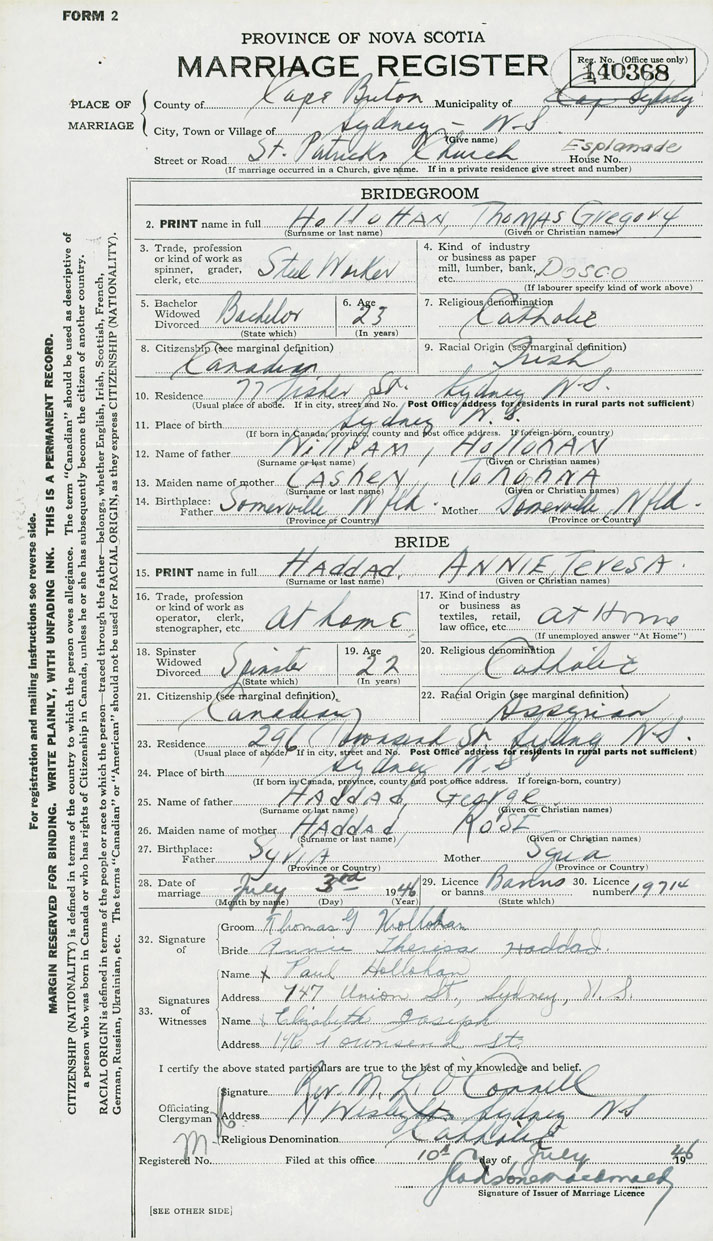 FORM 2
PROVINCE OF NOVA SCOTIA
MARRIAGE REGISTER
Reg. No. (Office use only)
140368
PLACE OF MARRIAGE
County of Cape Breton Municipality of Cap Sydney
City, Town or Village of Sydney - N-S
(Give name)
Street or Road St. Patricks Church House No. Esplanade
(If marriage occurred in a Church, give name. If in a private residence give street and number)
BRIDEGROOM
2. PRINT name in full HOLLOHAN, THOMAS GREGORY
(Surname or last name) (Given or Christian names)
3. Trade, profession or kind of work as spinner, grader, clerk, etc. Steel Worker
4. Kind of industry or business as paper mill, lumber, bank, etc. DOSCO
(If labourer specify kind of work above)
5. Bachelor Widowed Divorced Bachelor
(State which)
6. Age 23
(In years)
7. Religious denomination Catholic
8. Citizenship (see marginal definition) Canadian
9. Racial Origin (see marginal definition) Irish
10. Residence 77 Fisher St. Sydney N-S.
(Usual place of abode. If in city, street and No. Post Office address for residents in rural parts not sufficient)
11. Place of birth Sydney N.S.
(If born in Canada, province, county and post office address. If foreign-born, country)
12. Name of father WILLIAM, HOLLOHAN
(Surname or last name) (Given or Christian names)
13. Maiden name of mother CASHEN, JOHANNA
(Surname or last name) (Given or Christian names)
14. Birthplace: Father Somerville Nfld. Mother Somerville, Nfld.
(Province or Country) (Province or Country)
BRIDE
15. PRINT name in full HADDAD, ANNIE TERESA.
(Surname or last name) (Given or Christian names)
16. Trade, profession or kind of work as operator, clerk, stenographer, etc at home
17. Kind of industry or business as textiles, retail, law office, etc. at Home
(If unemployed answer "At Home")
18. Spinster Widowed Divorced Spinster
(State which)
19. Age 22
(In years)
20. Religious denomination Catholic
21. Citizenship (see marginal definition) Canadian
22. Racial Origin (see marginal definition) Assyrian
23. Residence 296 Townsend St. Sydney N.S.
(Usual place of abode. If in city, street and No. Post Office address for residents in rural parts not sufficient)
24. Place of birth Sydney N.S.
(If born in Canada, province, county and post office address. If foreign-born, country)
25. Name of father HADDAD, GEORGE
(Surname or last name) (Given or Christian names)
26. Maiden name of mother HADDAD ROSE
(Surname or last name) (Given or Christian names)
27. Birthplace: Father SYRIA Mother Syria
(Province or Country) (Province or Country)
28. Date of marriage July 3rd 1946
(Month by name) (Day) (Year)
29. Licence or banns Banns
(State which)
30. Licence number 19714
32. Signature of
Groom Thomas G Hollohan
Bride Annie Theresa Haddad.
33. Signatures of Witnesses
Name x Paul Hollohan
Address 747 Union St, Sydney, N.S.
Name x Elizabeth Joseph
Address Townsend St.
I certify the above stated particulars are true to the best of my knowledge and belief.
Officiating Clergyman
Signature Rev. M. L. O'Connell
Address Sydney NS
Religious Denomination Catholic
Registered No. M- Filed at this office 10th day of July 1946
Gladstone Macdonald
Signature of Issuer of Marriage Licence
[SEE OTHER SIDE]
For registration and mailing instructions see reverse side.
MARGIN RESERVED FOR BINDING. WRITE PLAINLY, WITH UNFADING INK. THIS IS A PERMANENT RECORD.
CITIZENSHIP (NATIONALITY) is defined in terms of the country to which the person owes allegiance. The term "Canadian" should be used as descriptive of
a person who was born in Canada or who has rights of Citizenship in Canada, unless he or she has subsequently become the citizen of another country.
RACIAL ORIGIN is defined in terms of the people or race to which the person—traced through the father—belongs, whether English, Irish, Scottish, French,
German, Russian, Ukrainian, etc. The terms "Canadian" or "American" should not be used for RACIAL ORIGIN, as they express CITIZENSHIP (NATIONALITY).